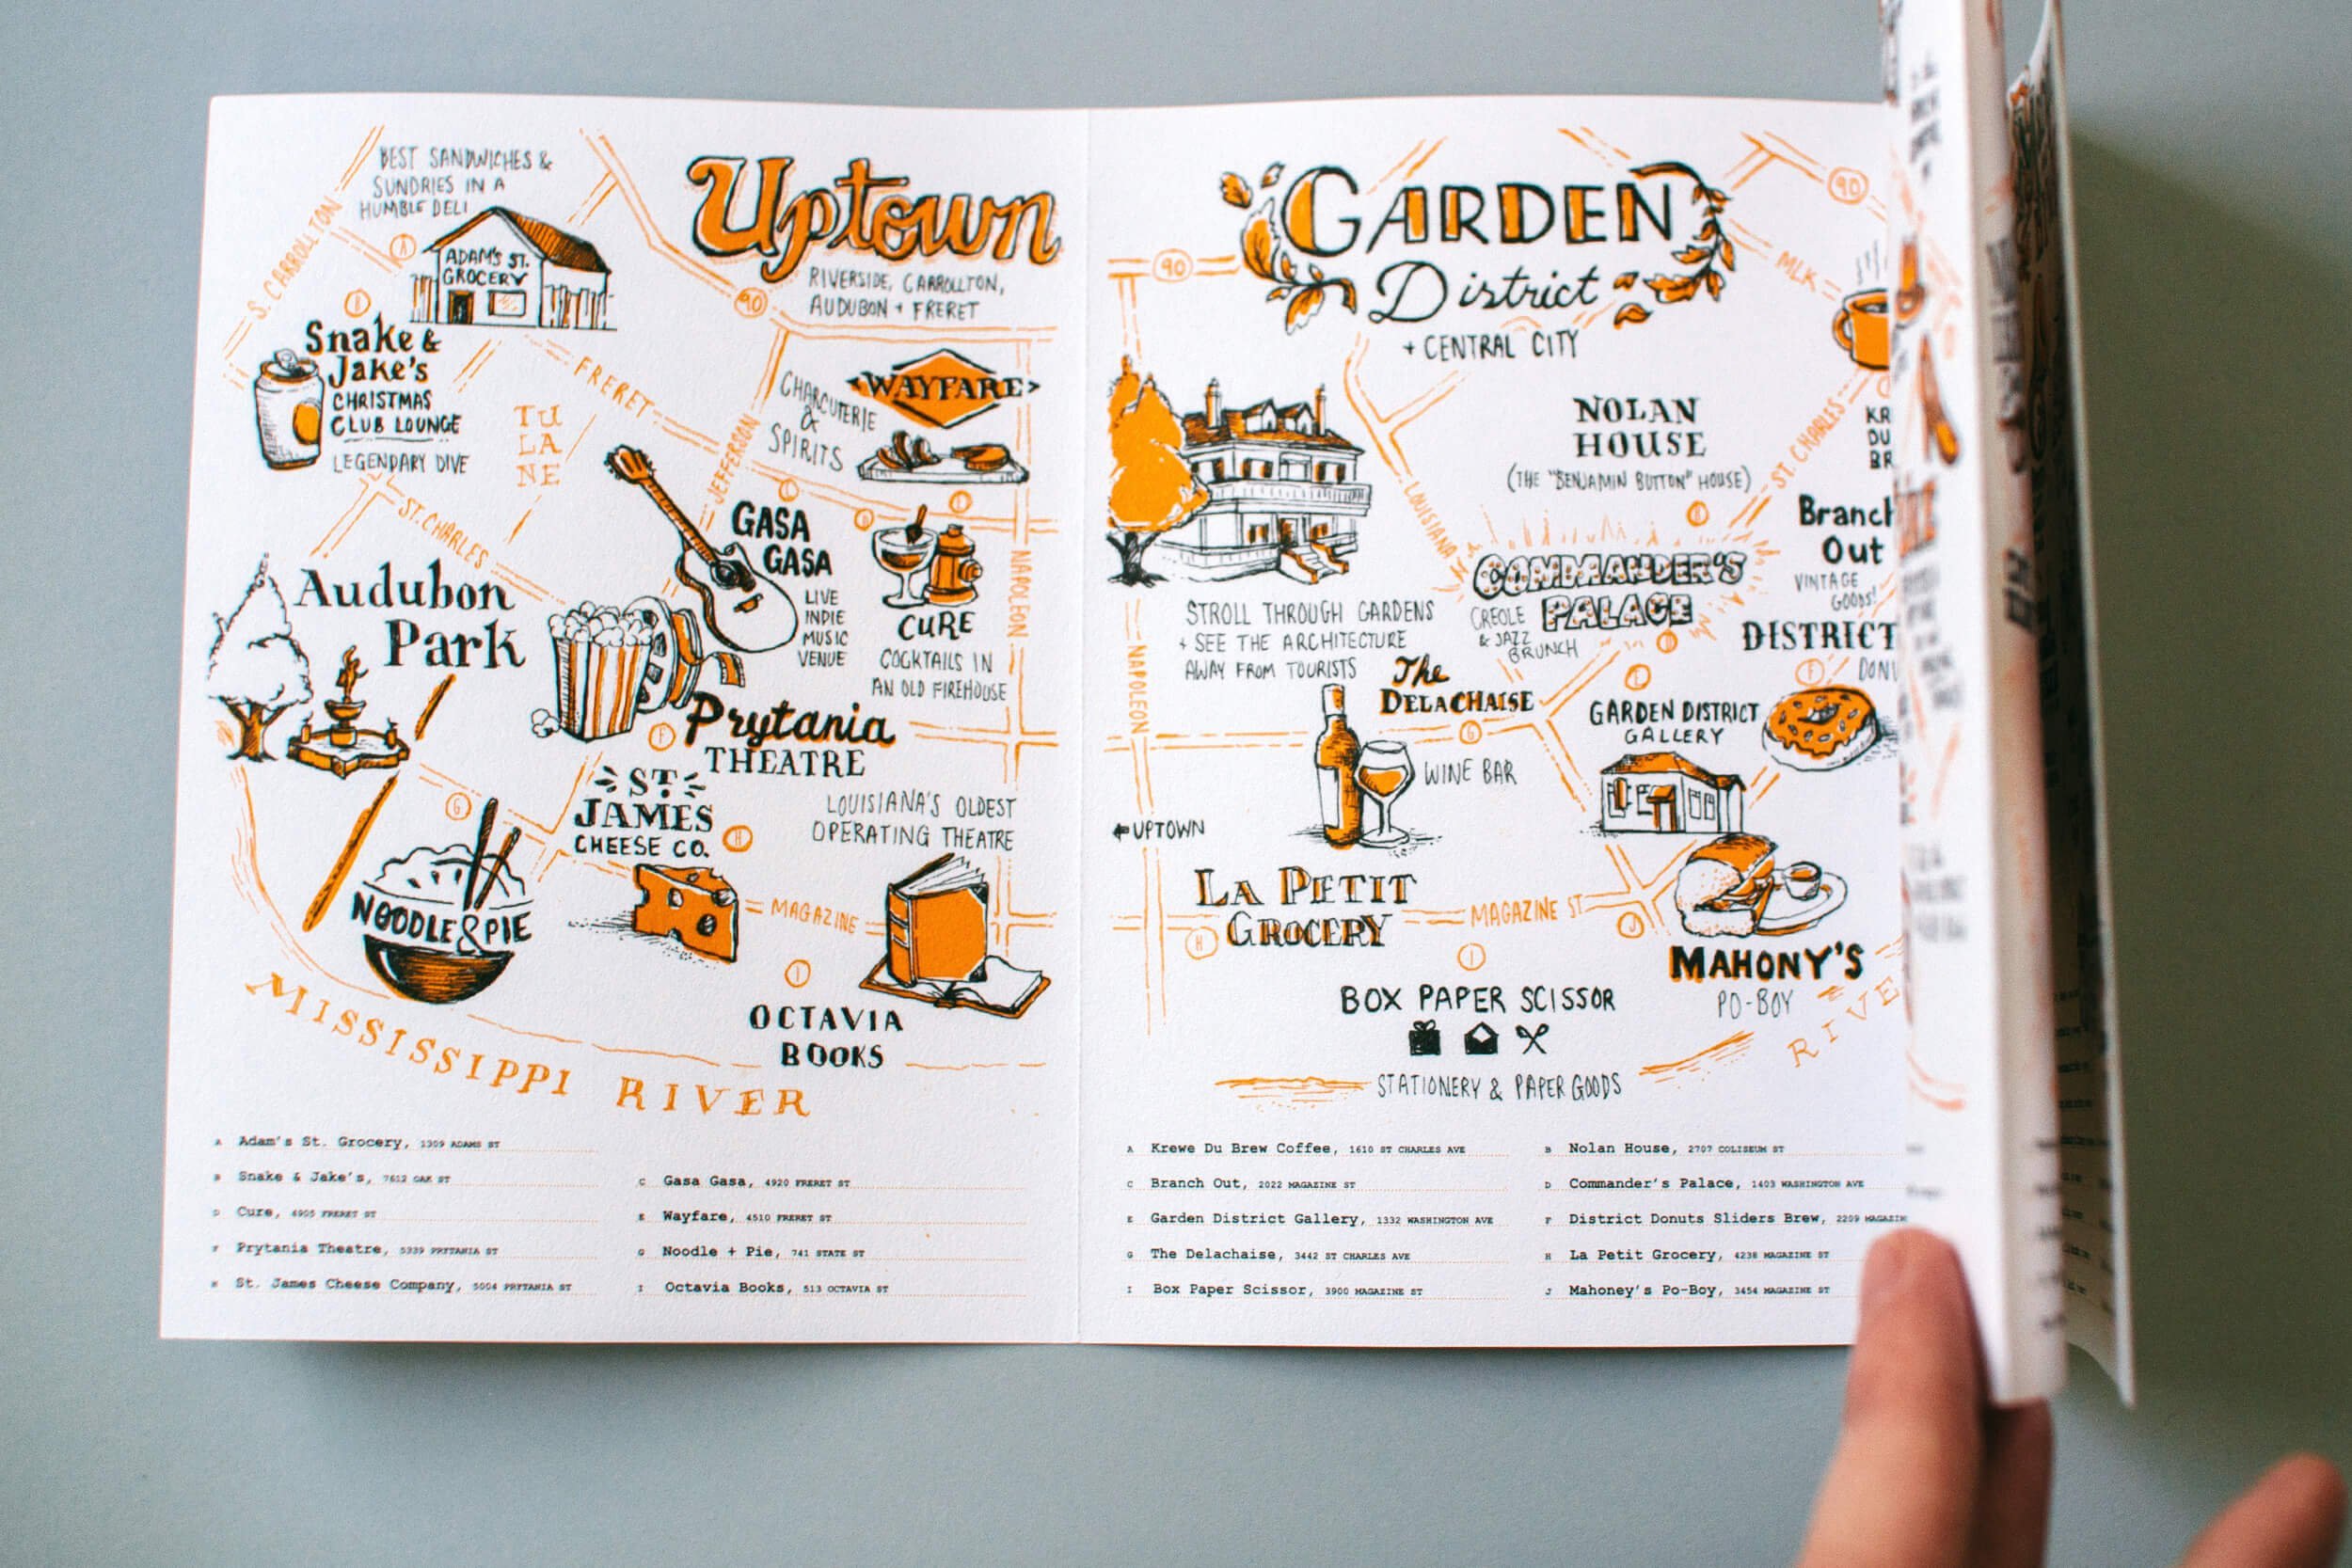 BEST SANDWICHES &
SUNDRIES IN A
HUMBLE DELI
ADAM'S ST.
GROCERY
S. CARROLLTON
A
B
Snake &
Jake's
CHRISTMAS
CLUB LOUNGE
LEGENDARY DIVE
Uptown
RIVERSIDE, CARROLLTON,
AUDUBON + FRERET
90
FRERET
TU
LA
NE
JEFFERSON
CHARCUTERIE
&
SPIRITS
WAYFARE
C
D
E
GASA
GASA
LIVE
INDIE
MUSIC
VENUE
CURE
COCKTAILS IN
AN OLD FIREHOUSE
NAPOLEON
ST. CHARLES
Audubon
Park
F
Prytania
THEATRE
LOUISIANA'S OLDEST
OPERATING THEATRE
G
ST.
JAMES
CHEESE CO.
H
NOODLE & PIE
MAGAZINE
I
OCTAVIA
BOOKS
MISSISSIPPI RIVER
A Adam's St. Grocery, 1309 ADAMS ST
B Snake & Jake's, 7612 OAK ST
C Gasa Gasa, 4920 FRERET ST
D Cure, 4905 FRERET ST
E Wayfare, 4510 FRERET ST
F Prytania Theatre, 5339 PRYTANIA ST
G Noodle + Pie, 741 STATE ST
H St. James Cheese Company, 5004 PRYTANIA ST
I Octavia Books, 513 OCTAVIA ST
GARDEN
District
+ CENTRAL CITY
90
90
MLK
NOLAN
HOUSE
(THE "BENJAMIN BUTTON" HOUSE)
ST. CHARLES
KR
DU
BR
LOUISIANA
B
Branch
Out
VINTAGE
GOODS!
COMMANDER'S
PALACE
CREOLE
& JAZZ
BRUNCH
D
DISTRICT
F
DONU
STROLL THROUGH GARDENS
+ SEE THE ARCHITECTURE
AWAY FROM TOURISTS
NAPOLEON
The
DELACHAISE
G
WINE BAR
E
GARDEN DISTRICT
GALLERY
UPTOWN
LA PETIT
GROCERY
H
MAGAZINE ST
J
MAHONY'S
PO-BOY
I
BOX PAPER SCISSOR
STATIONERY & PAPER GOODS
RIVE
A Krewe Du Brew Coffee, 1610 ST CHARLES AVE
B Nolan House, 2707 COLISEUM ST
C Branch Out, 2022 MAGAZINE ST
D Commander's Palace, 1403 WASHINGTON AVE
E Garden District Gallery, 1332 WASHINGTON AVE
F District Donuts Sliders Brew, 2209 MAGAZIN
G The Delachaise, 3442 ST CHARLES AVE
H La Petit Grocery, 4238 MAGAZINE ST
I Box Paper Scissor, 3900 MAGAZINE ST
J Mahoney's Po-Boy, 3454 MAGAZINE ST